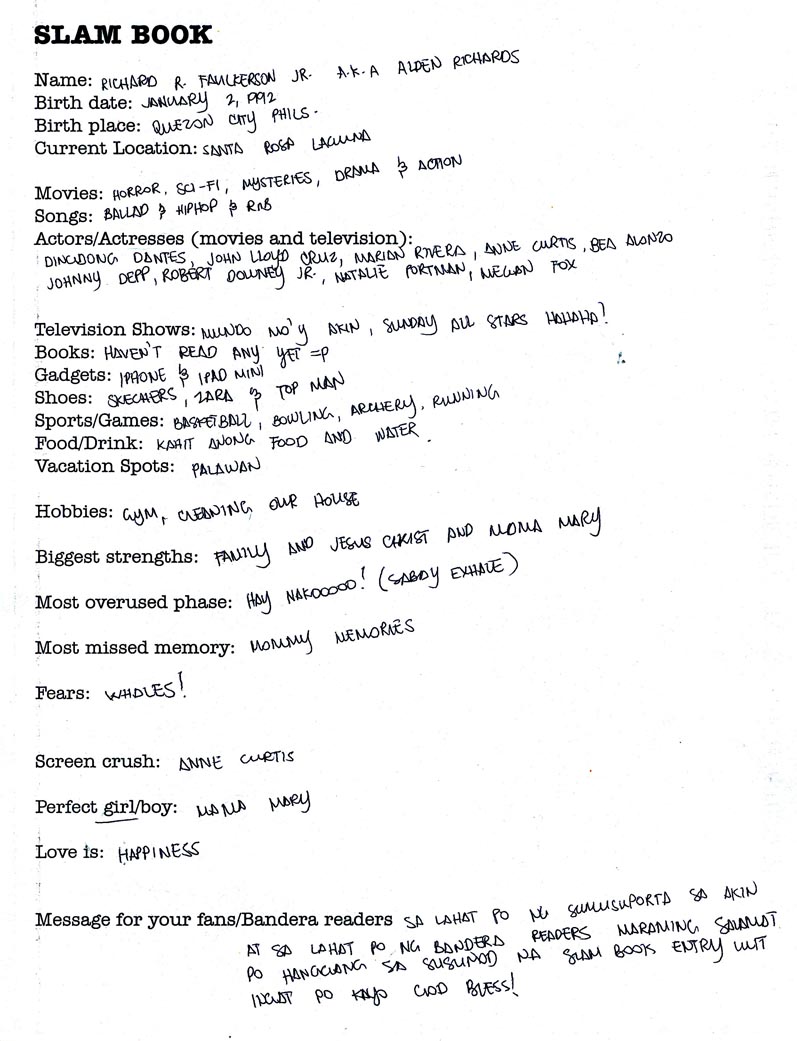 SLAM BOOK
Name: RICHARD R. FAULKERSON JR. A.K.A ALDEN RICHARDS
Birth date: JANUARY 2, 1992
Birth place: QUEZON CITY PHILS.
Current Location: SANTA ROSA LAGUNA
Movies: HORROR, SCI-FI, MYSTERIES, DRAMA & ACTION
Songs: BALLAD & HIPHOP & RNB
Actors/Actresses (movies and television):
DINGDONG DANTES, JOHN LLOYD CRUZ, MARIAN RIVERA, ANNE CURTIS, BEA ALONZO
JOHNNY DEPP, ROBERT DOWNEY JR., NATALIE PORTMAN, MEGAN FOX
Television Shows: MUNDO MO'Y AKIN, SUNDAY ALL STARS HAHAHA!
Books: HAVEN'T READ ANY YET =P
Gadgets: IPHONE & IPAD MINI
Shoes: SKECHERS, ZARA & TOP MAN
Sports/Games: BASKETBALL, BOWLING, ARCHERY, RUNNING
Food/Drink: KAHIT ANONG FOOD AND WATER.
Vacation Spots: PALAWAN
Hobbies: GYM, CLEANING OUR HOUSE
Biggest strengths: FAMILY AND JESUS CHRIST AND MAMA MARY
Most overused phase: HAY NAKOOOOO! (SABAY EXHALE)
Most missed memory: MOMMY MEMORIES
Fears: WHALES!
Screen crush: ANNE CURTIS
Perfect girl/boy: MAMA MARY
Love is: HAPPINESS
Message for your fans/Bandera readers SA LAHAT PO NG SUMUSUPORTA SA AKIN
AT SA LAHAT PO NG BANDERA READERS MARAMING SALAMAT
PO HANGGANG SA SUSUNOD NA SLAM BOOK ENTRY ULIT
INGAT PO KAYO GOD BLESS!